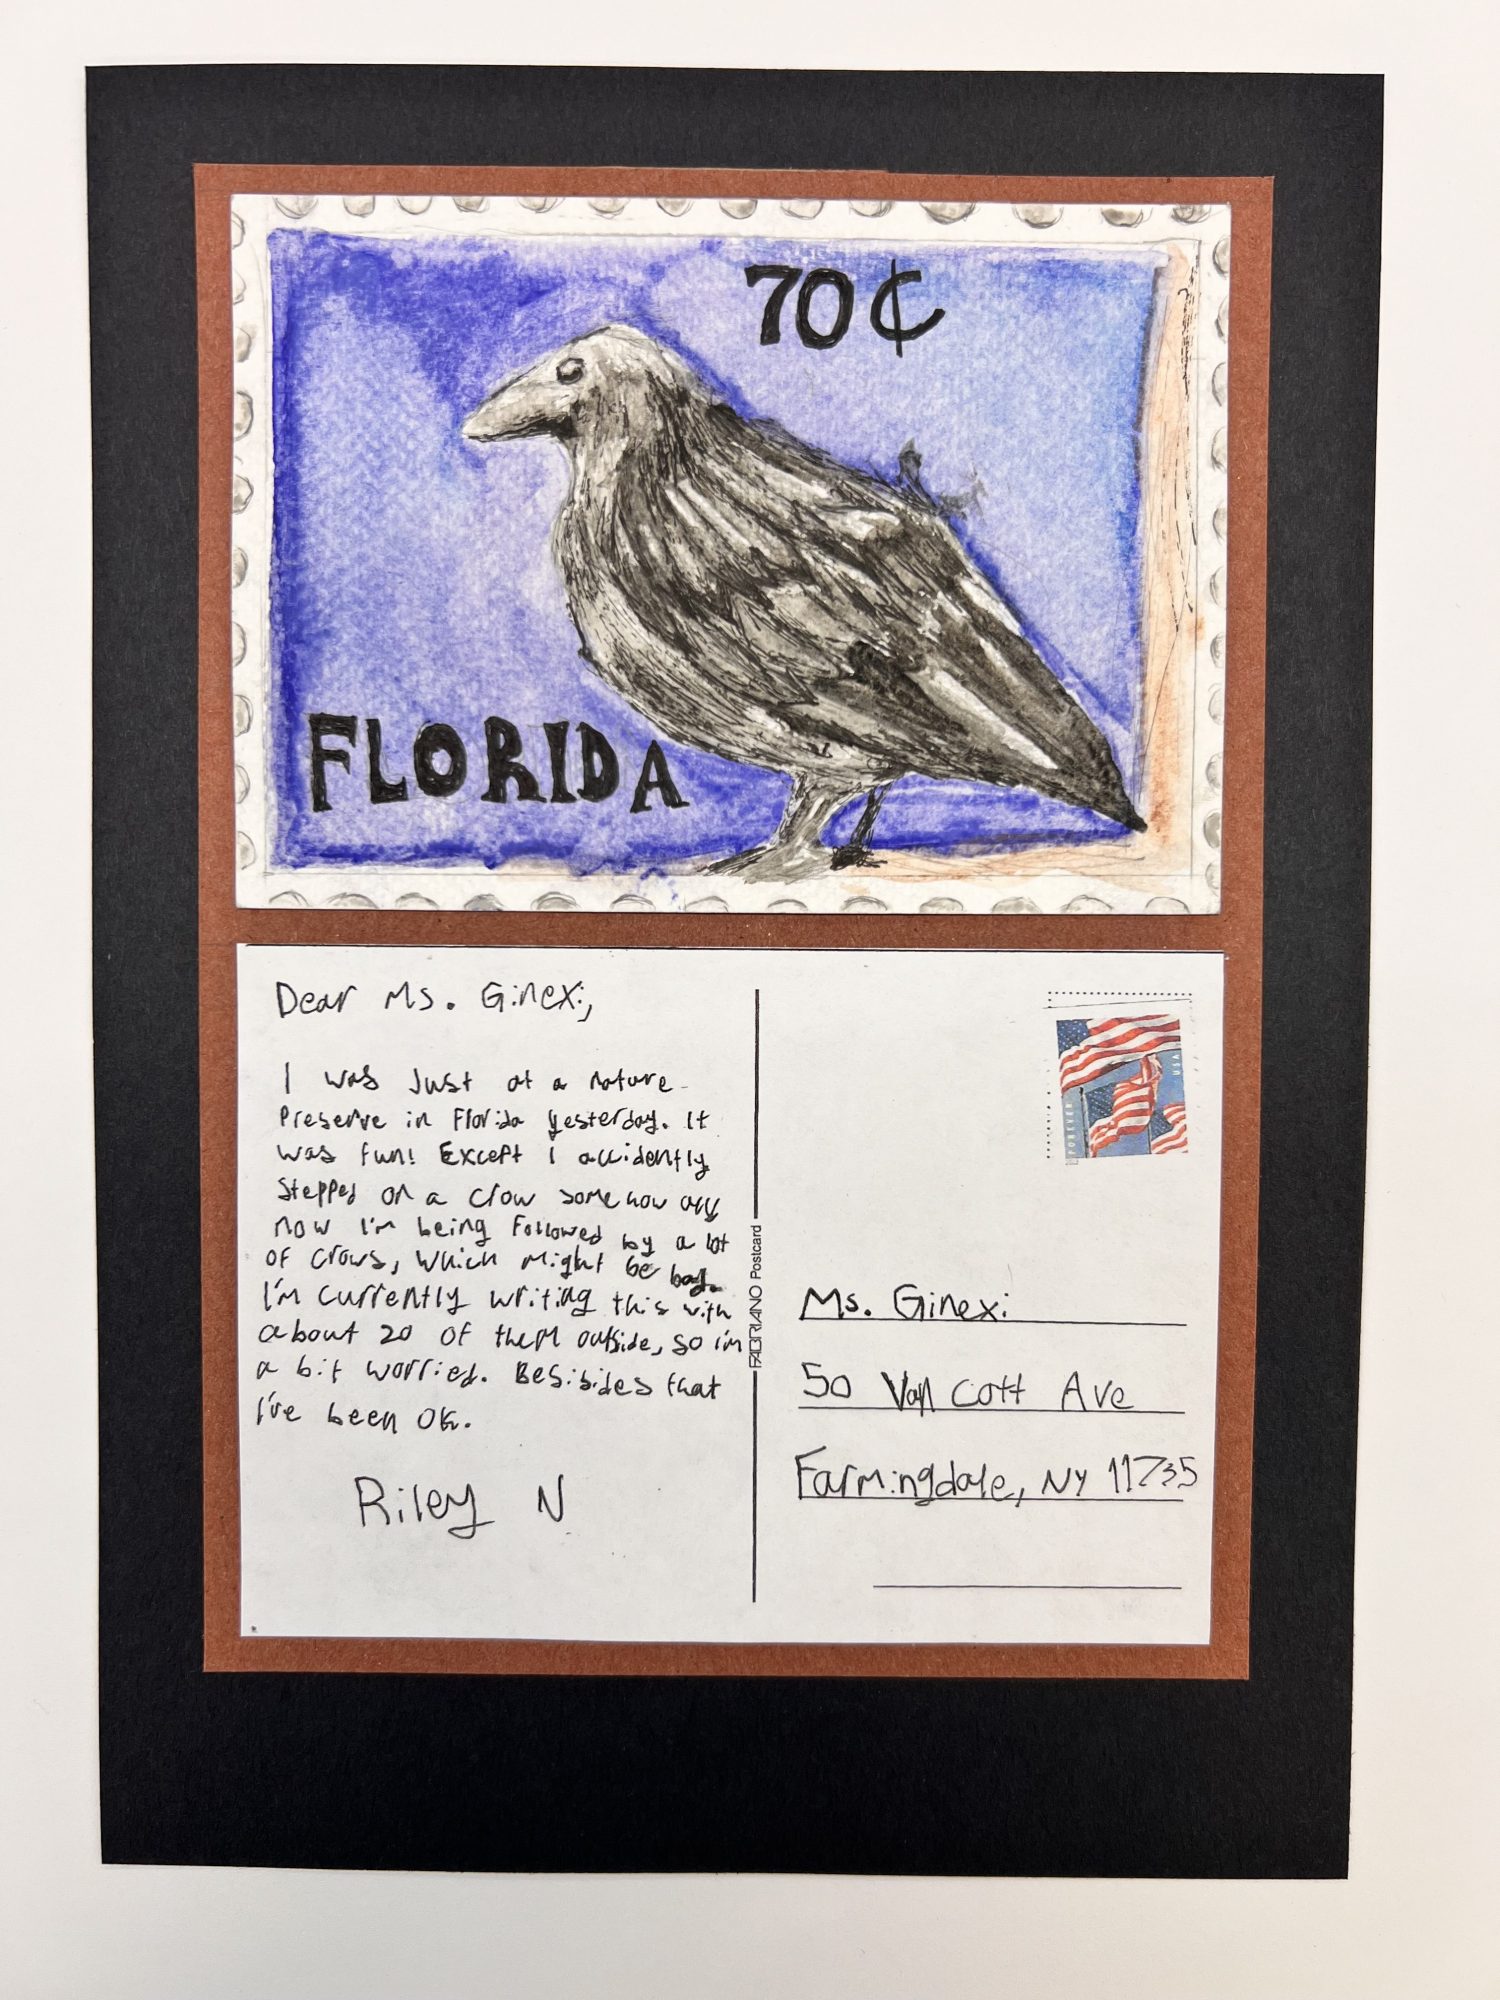 70¢
FLORIDA
Dear Ms. Ginexi,
I was Just at a nature
Preserve in Florida yesterday. It
was fun! Except I accidently
Stepped on a crow somehow
now I'm being followed by a lot
of crows, which might be bad.
I'm currently writing this with
about 20 of them outside, so i'm
a bit worried. Besisides that
I've been OK.
Riley N
FABRIANO Postcard
USA
FOREVER
Ms. Ginexi
50 Van Cott Ave
Farmingdale, NY 11735